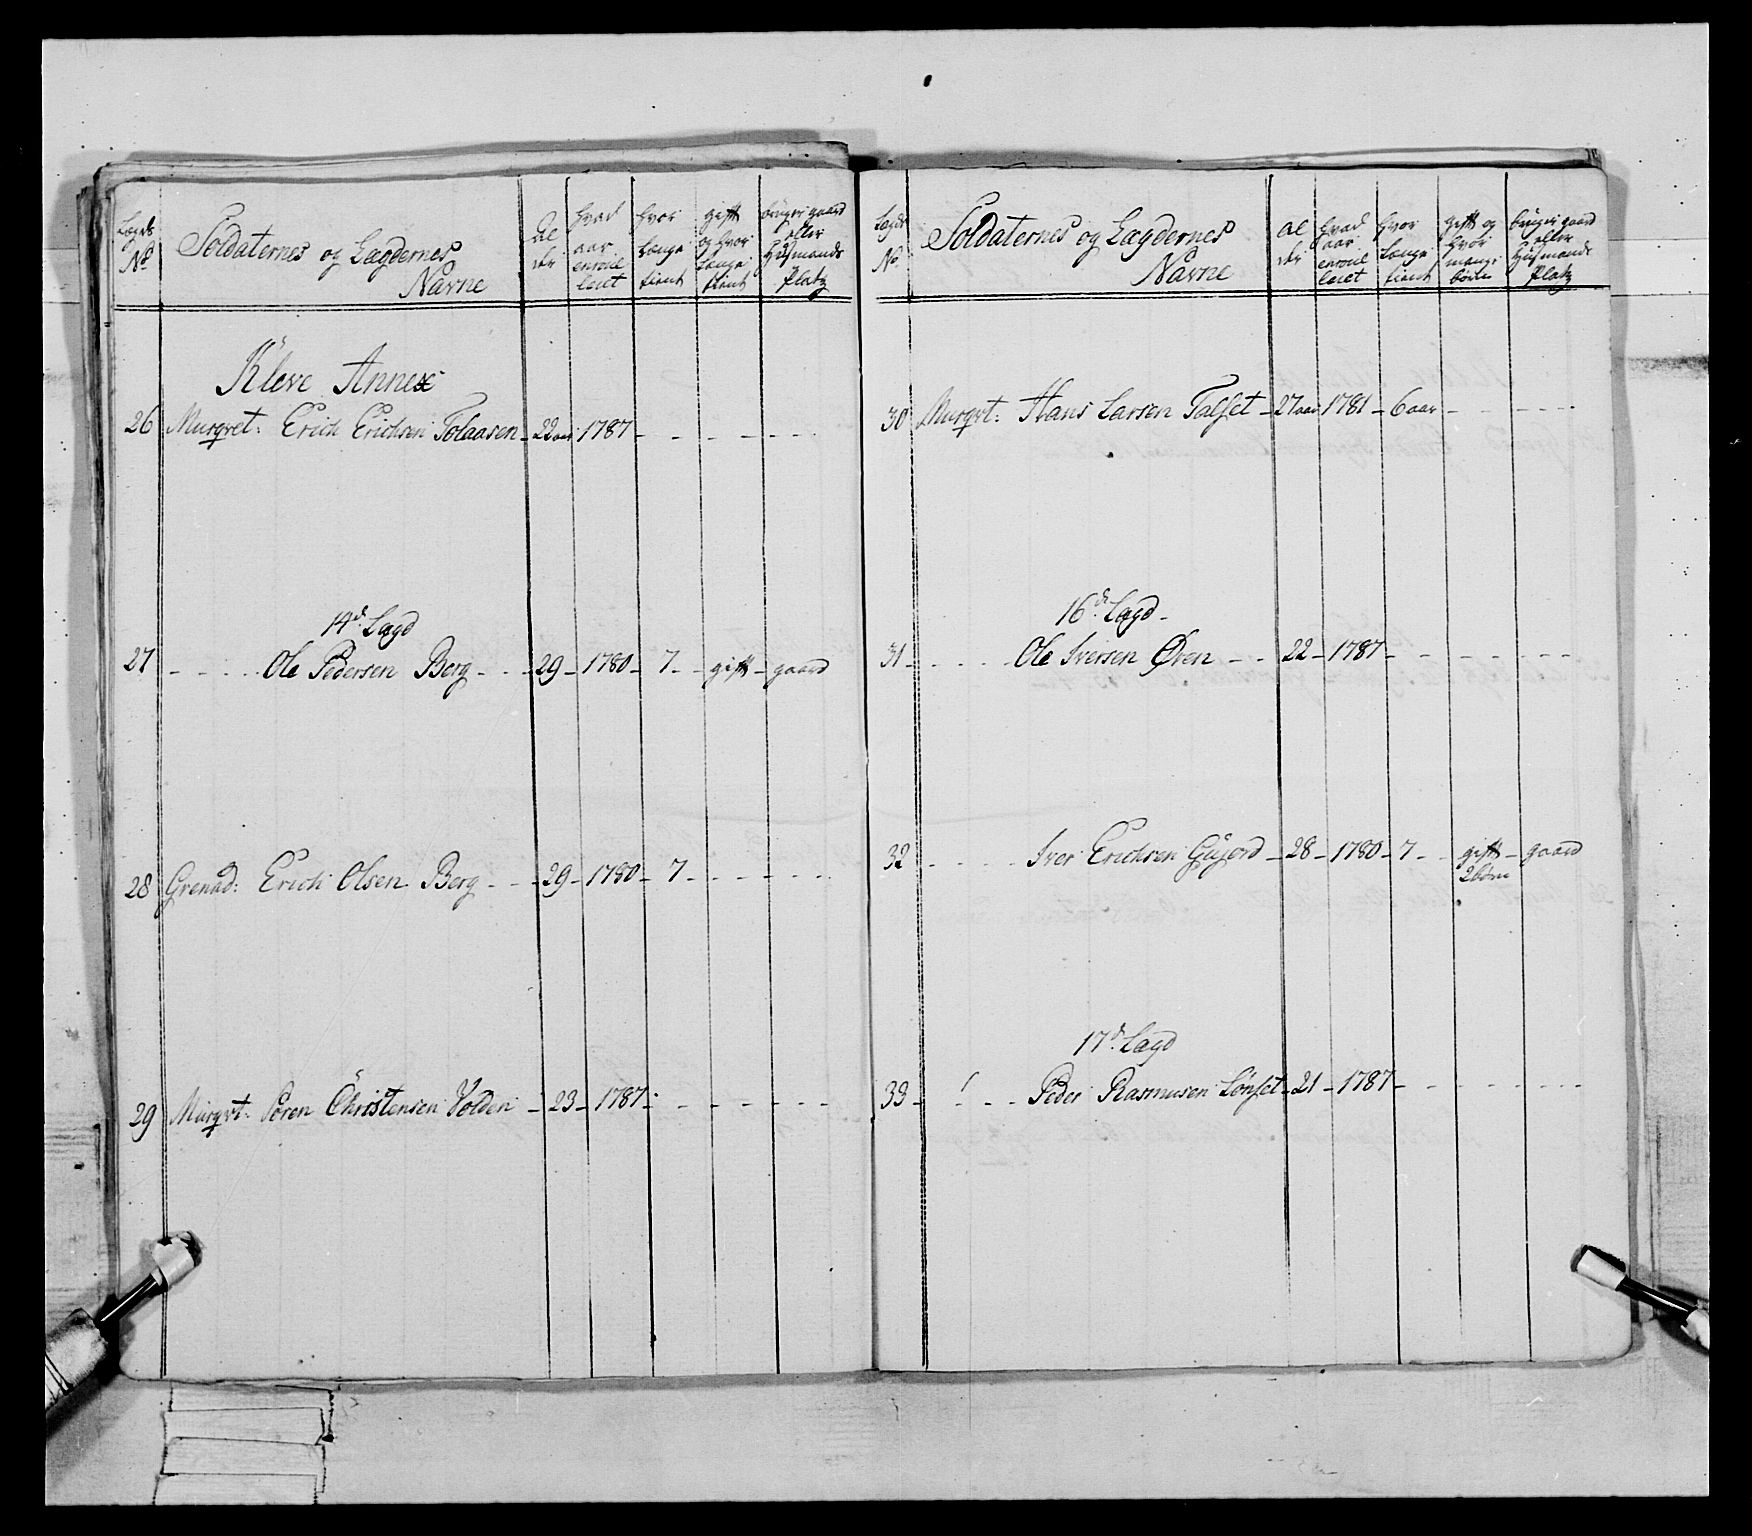 Lægds No Soldaternes og Lægdernes Navne Al der hvad aar enroul leret hvor længe tient gift og hvor længe tient bruger gaard eller Huusmands Platz
Kleve Annex
26 Murqvet: Erich Erichsen Tolaasen - 22 aar 1787 - - - - - -
14d Lægd
27 - - - - Ole Pedersen Berg - - - 29 - 1780 - 7 - - gift - gaard
28 Grenad: Erich Olsen Berg - - - 29 - 1780 - 7 - - - - - -
29 Murqvt: Søren Christensen Volden - 23 - 1787 - - - - - -
Lægds No Soldaternes og Lægdernes Navne al der hvad aar enroul leret hvor længe tient gift og hvor mange børn bruger gaard eller Huusmands Platz
30 Murqvt: Hans Larsen Talset - 27 aar 1781 - 6 aar - - - - -
16de Lægd -
31 - - - - - Ole Iversen Øren - - 22 - 1787 - - - - - - -
32 - - - - Iver Erichsen Gujord - 28 - 1780 - 7 - - gift - gaard
2 børn
17d Lægd
33 - - - Peder Rasmusen Lønset - 21 - 1787 - - - - - - -